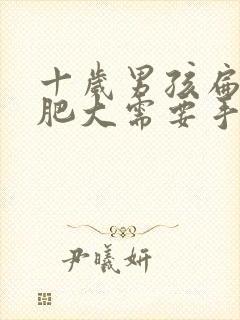 十岁男孩扁
肥大需要手
尹曦妍